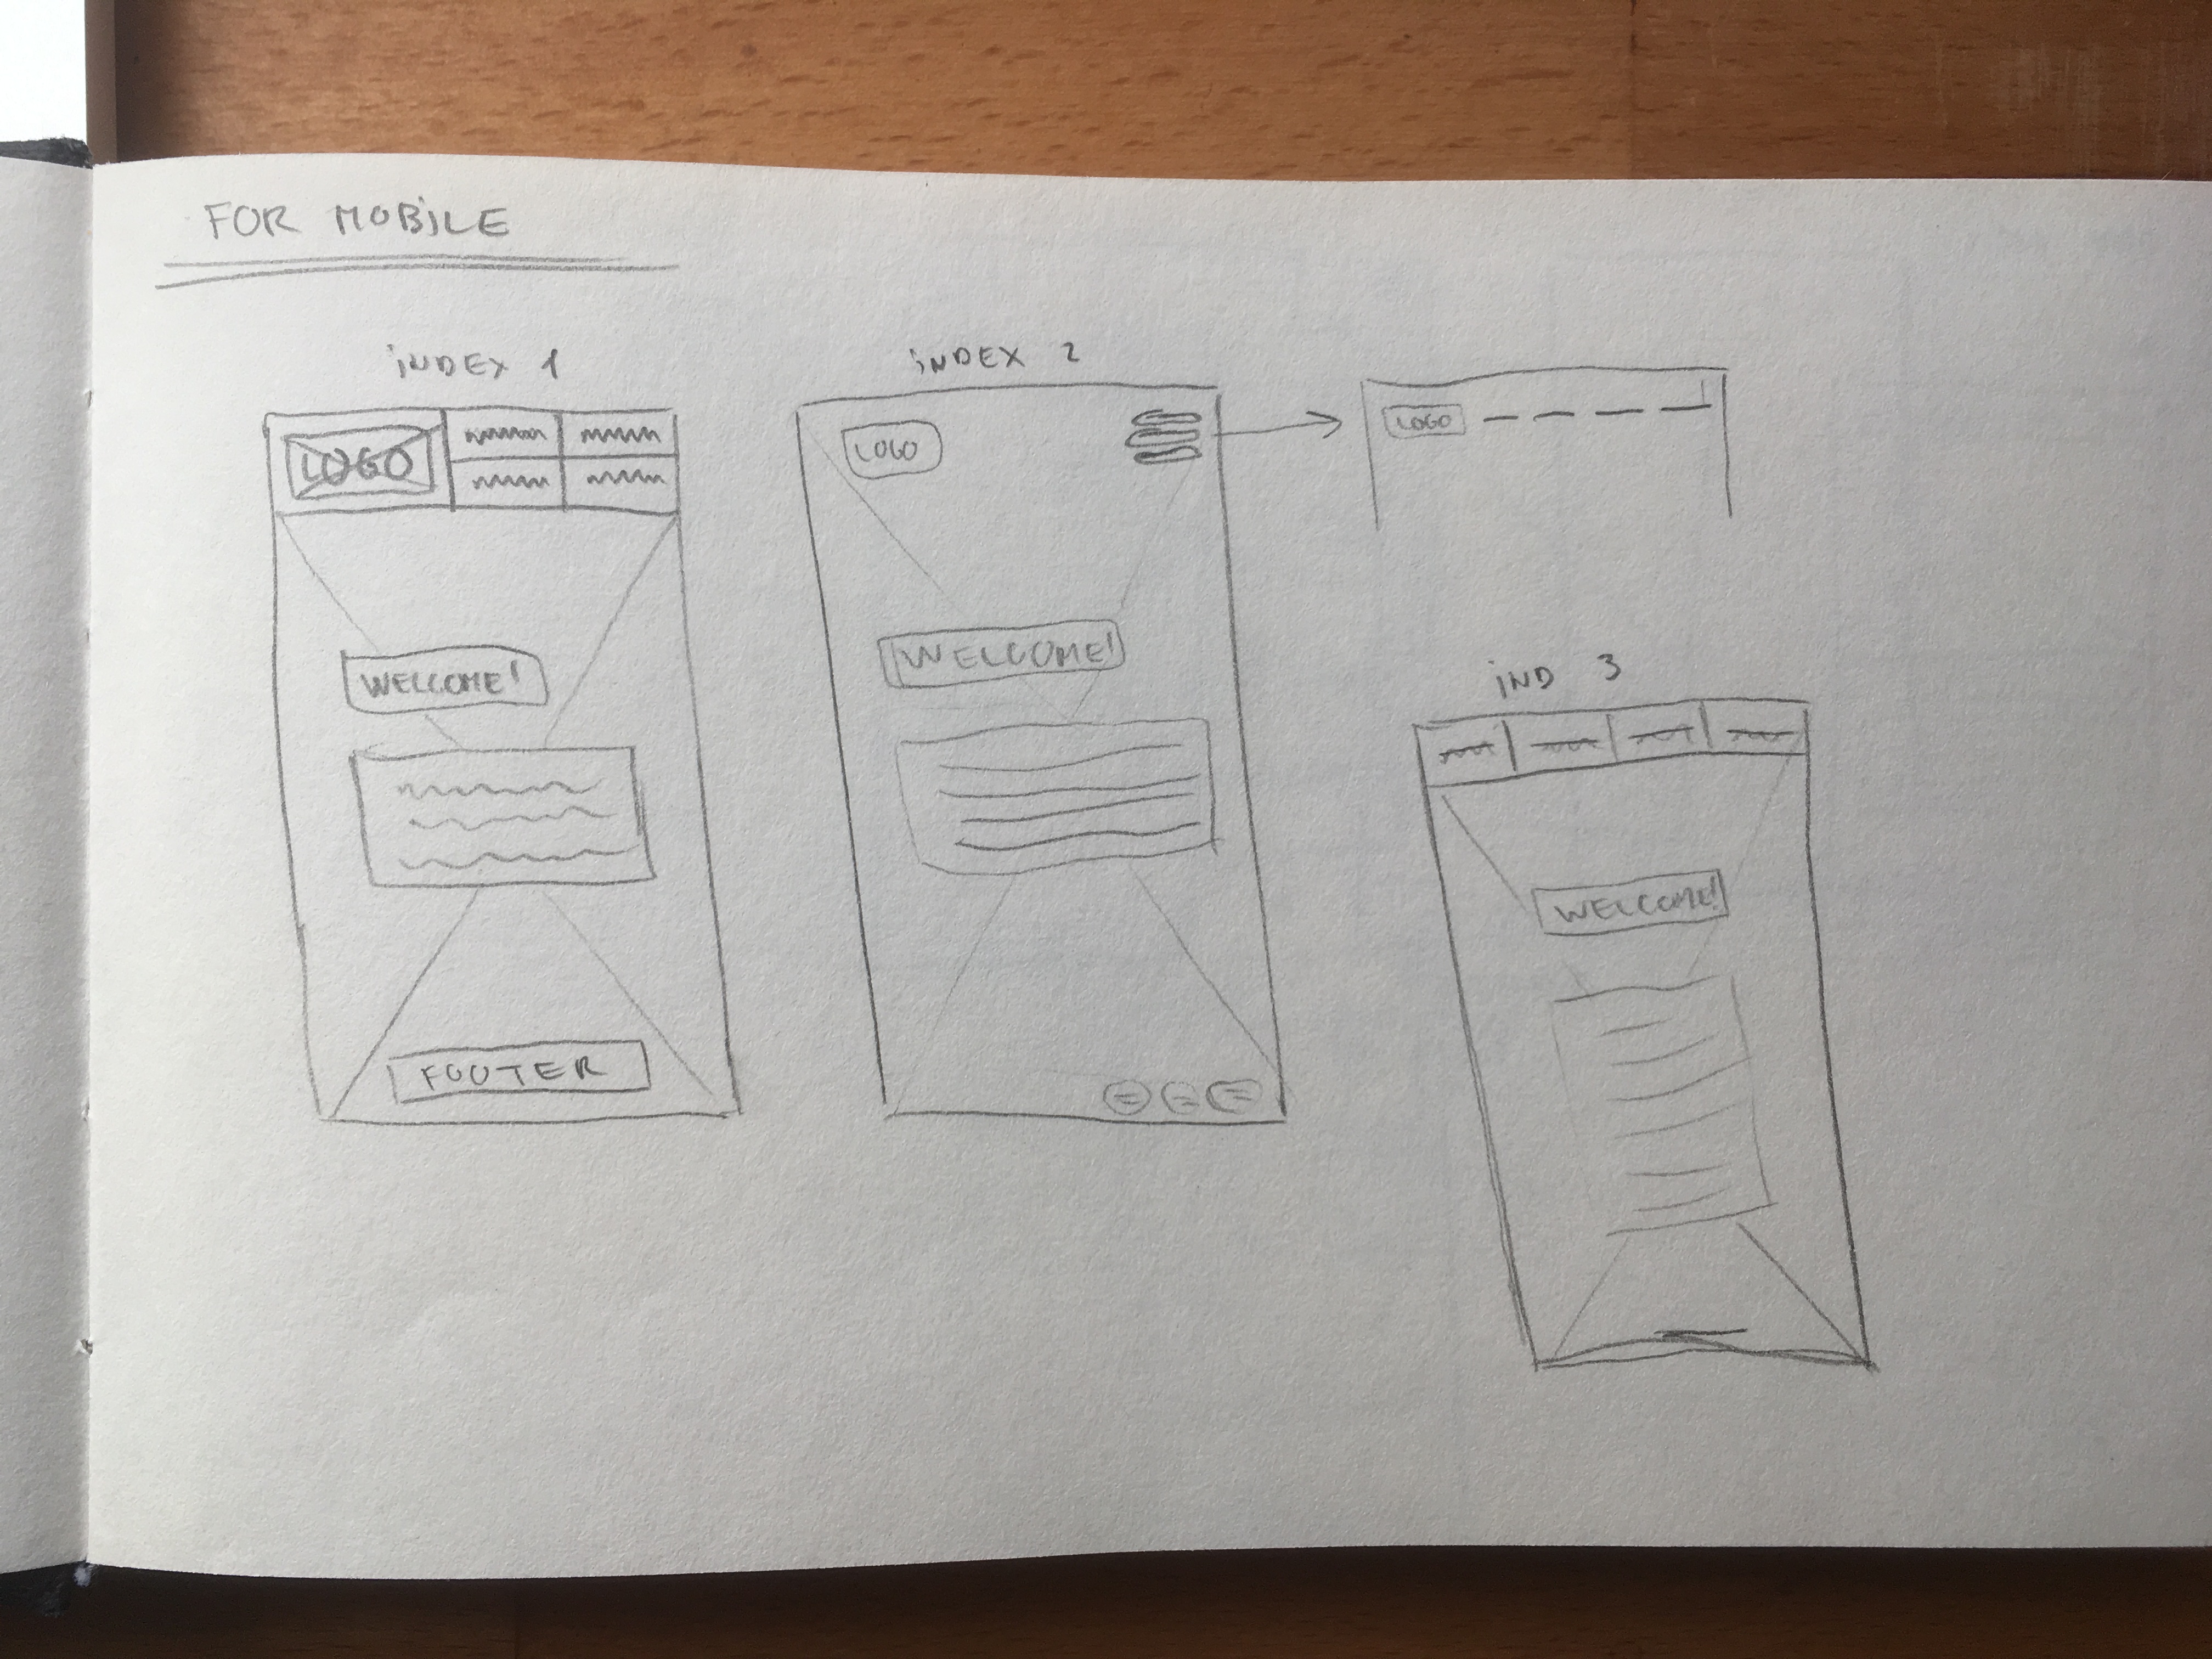 FOR MOBILE
iNDEX 1
LOGO
WELCOME!
FOOTER
iNDEX 2
LOGO
WELCOME!
LOGO
iND 3
WELCOME!